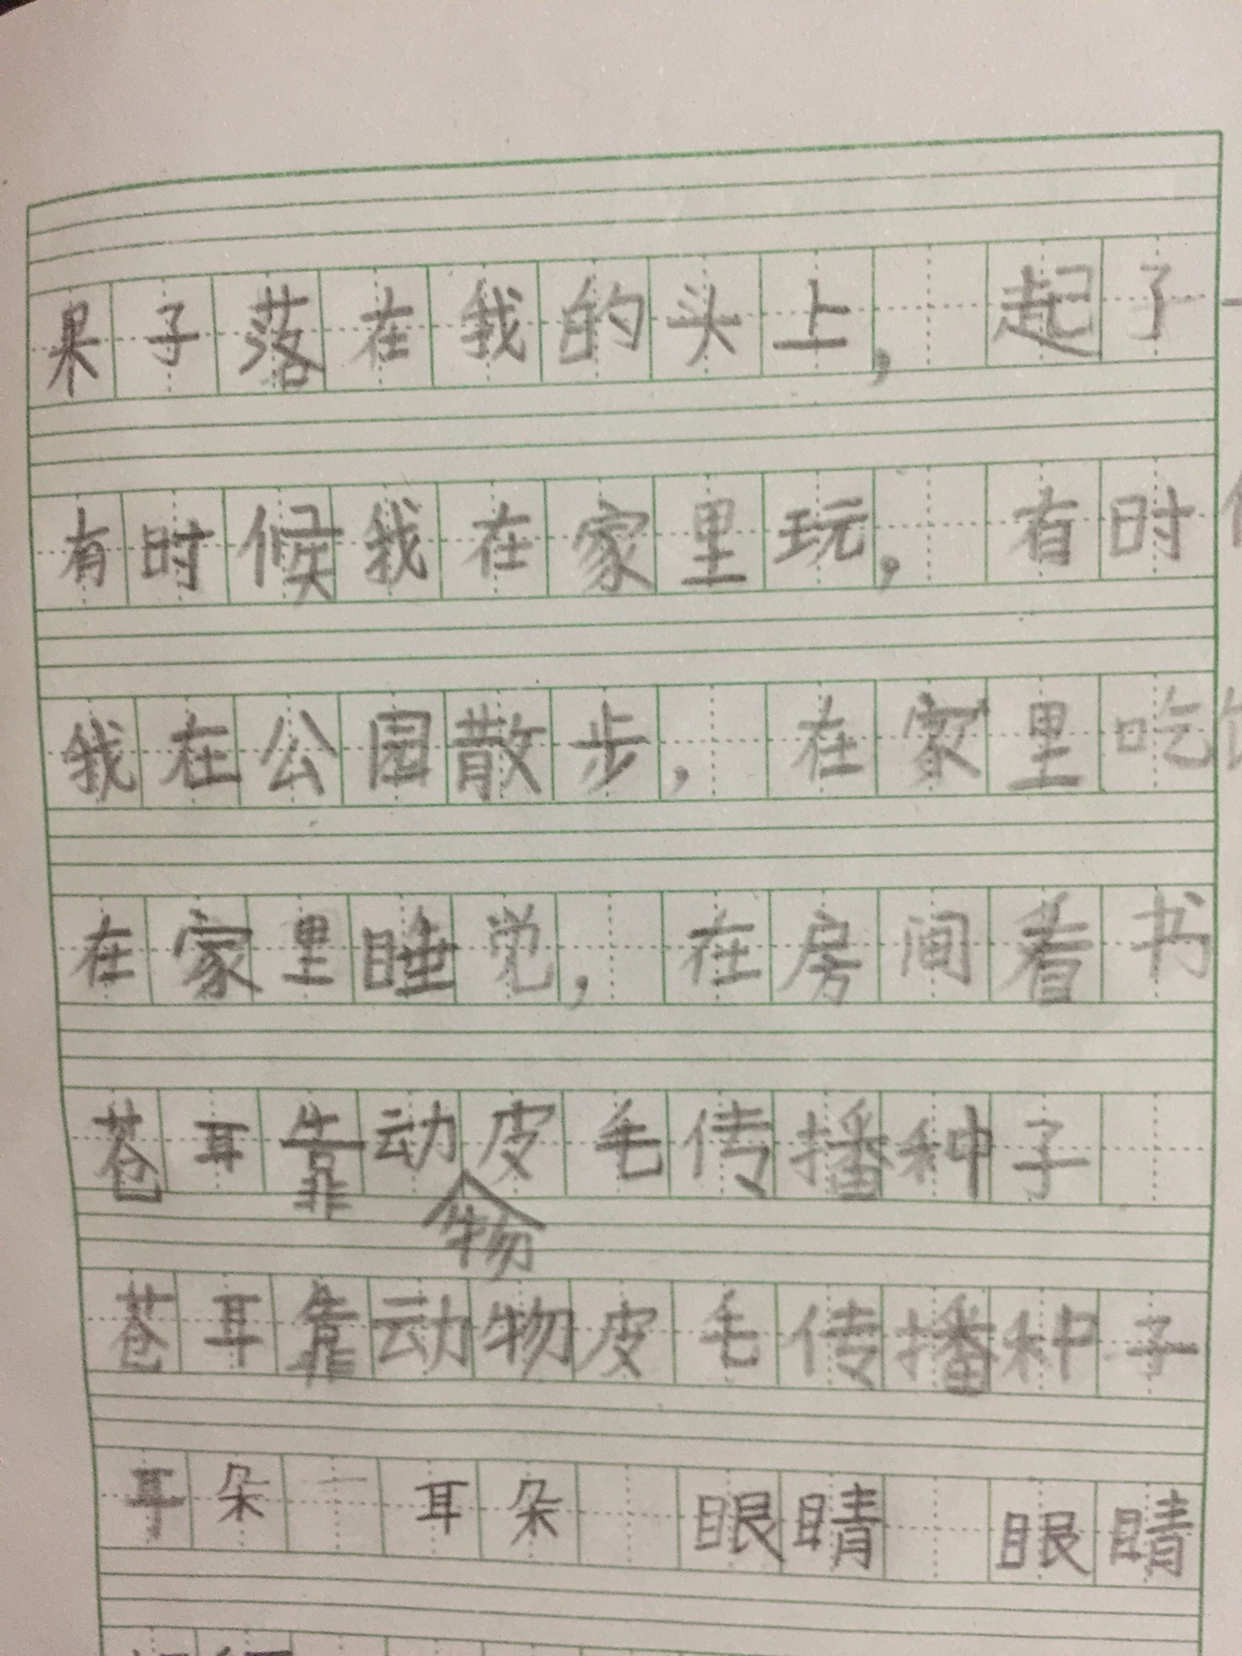 果子落在我的头上，起了一
有时候我在家里玩，有时
我在公园散步，在家里吃
在家里睡觉，在房间看书
苍耳靠动物皮毛传播种子
苍耳靠动物皮毛传播种子
耳朵 耳朵 眼睛 眼睛